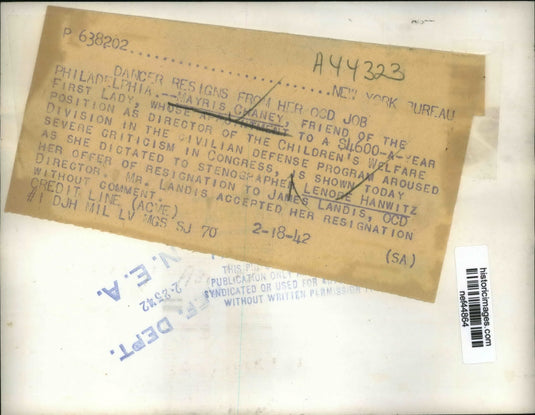 P 638202
A44323
NEW YORK BUREAU
DANCER RESIGNS FROM HER OCD JOB
PHILADELPHIA.--MAYRIS CHANEY, FRIEND OF THE
FIRST LADY, WHOSE APPOINTMENT TO A $4600-A-YEAR
POSITION AS DIRECTOR OF THE CHILDREN'S WELFARE
DIVISION IN THE CIVILIAN DEFENSE PROGRAM AROUSED
SEVERE CRITICISM IN CONGRESS, IS SHOWN TODAY
AS SHE DICTATED TO STENOGRAPHER, LENORE HANWITZ
HER OFFER OF RESIGNATION TO JAMES LANDIS, OCD
DIRECTOR. MR. LANDIS ACCEPTED HER RESIGNATION
WITHOUT COMMENT.
CREDIT LINE (ACME)
#1 DJH MIL LV MGS SJ 70 2-18-42 (SA)
PUBLICATION ONLY
SYNDICATED OR USED FOR
WITHOUT WRITTEN PERMISSION
N. E. A.
DEPT.
historicimages.com
nef44864